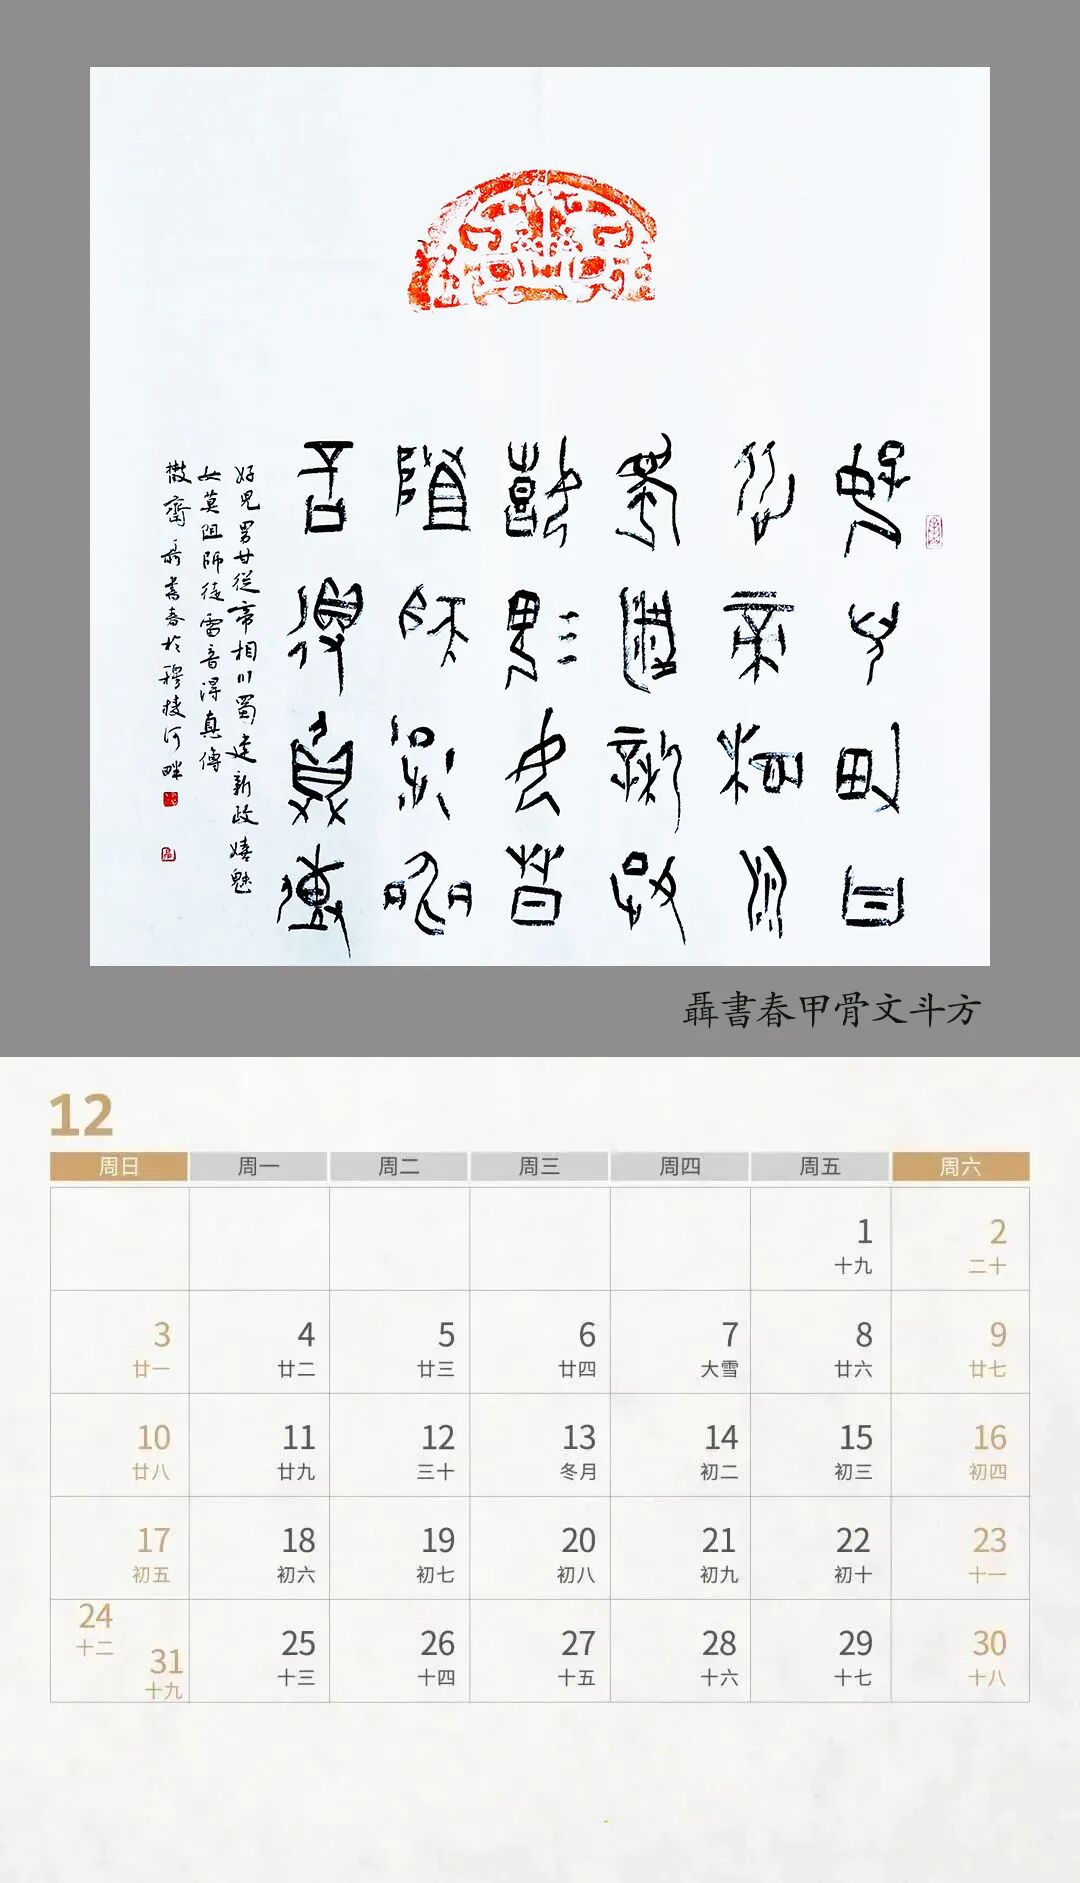 好兒男甘
從帝相川
蜀建新政
嬉魅女莫
阻師徒雷
音得真傳
好児男甘從帝相川蜀建新政嬉魅
女莫阻師徒雷音得真傳
齋聶書春於穆棱河畔
聶書春甲骨文斗方
12
周日 周一 周二 周三 周四 周五 周六
1 2
十九 二十
3 4 5 6 7 8 9
廿一 廿二 廿三 廿四 大雪 廿六 廿七
10 11 12 13 14 15 16
廿八 廿九 三十 冬月 初二 初三 初四
17 18 19 20 21 22 23
初五 初六 初七 初八 初九 初十 十一
24 31 25 26 27 28 29 30
十二 十九 十三 十四 十五 十六 十七 十八